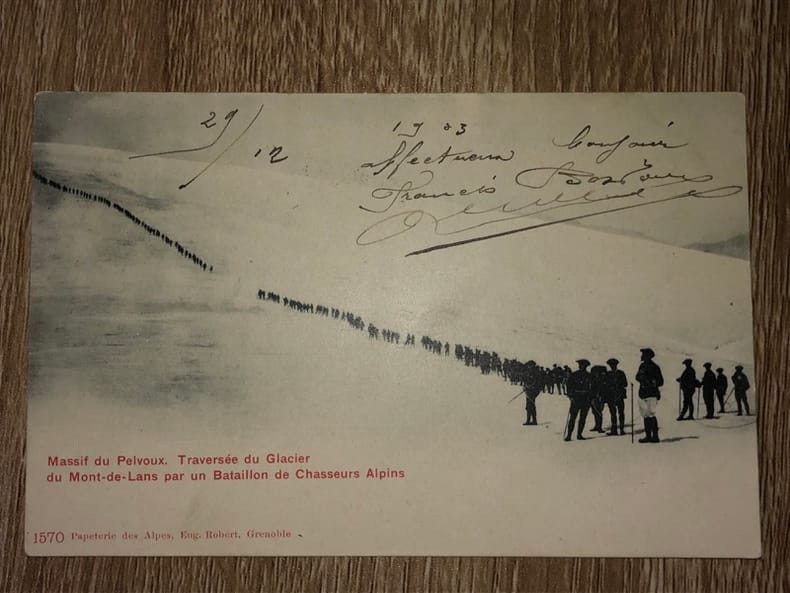 29/12 1903
affectueux Bonjour
Francis
Massif du Pelvoux. Traversée du Glacier
du Mont-de-Lans par un Bataillon de Chasseurs Alpins
1570 Papeterie des Alpes, Eug. Robert, Grenoble